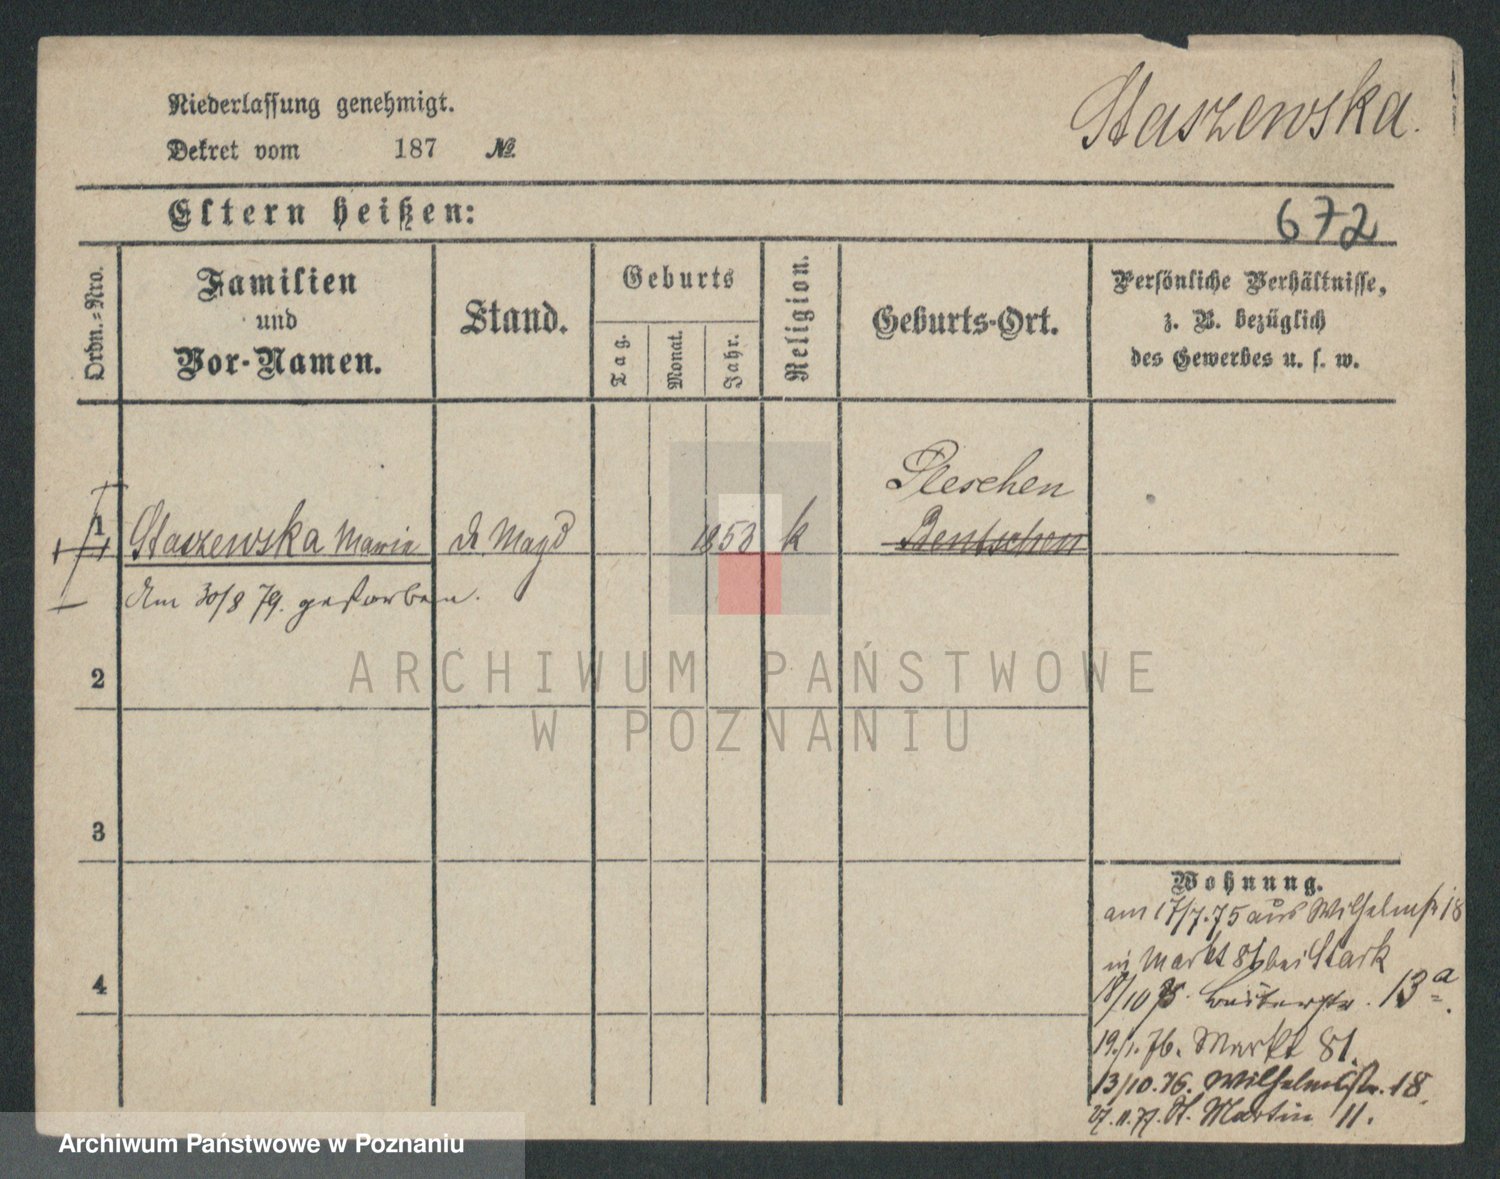 Niederlassung genehmigt.
Dekret vom 187 №
Staszewska.
Eltern heißen:
672
Ordn.-Nro.
Familien
und
Vor-Namen.
Stand.
Geburts
Tag.
Monat.
Jahr.
Religion.
Geburts-Ort.
Persönliche Verhältnisse,
z. B. bezüglich
des Gewerbes u. s. w.
Pleschen
1 Staszewska Marie d. Magd 1853 k Bentschen
Am 30/8 79. gestorben.
2
3
4
ARCHIWUM PAŃSTWOWE
W POZNANIU
Wohnung.
am 17/7.75 aus Wilhelmstr 18
in Markt 81 bei Stark
18/10 75. 13a.
19./1.76. Markt 81.
13/10.76. Wilhelmstr. 18.
27.11.77. St. Martin 11.
Archiwum Państwowe w Poznaniu